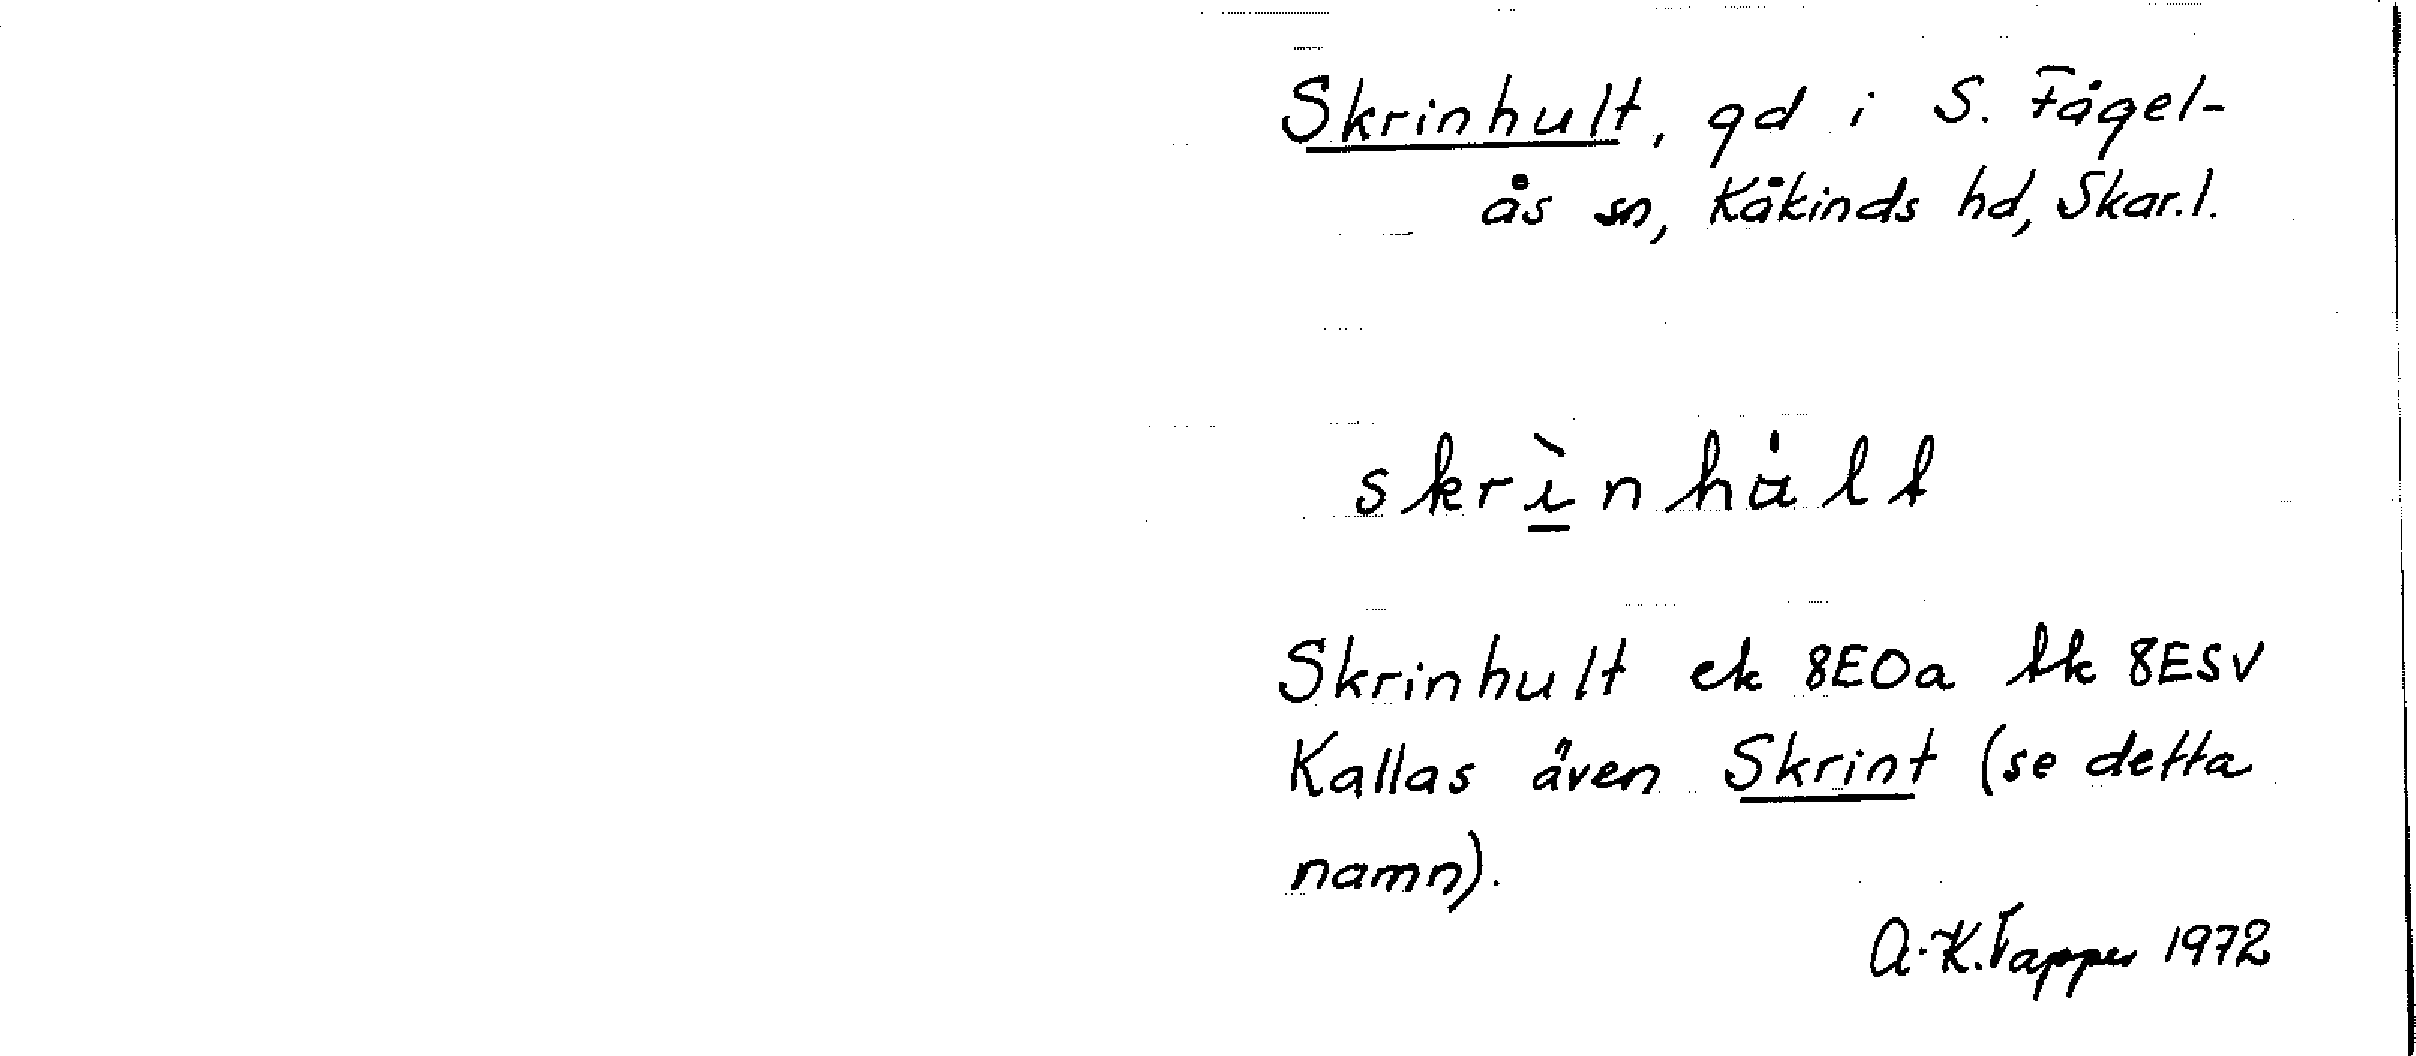 Skrinhult, gd i S. Fågel-
ås sn, Kåkinds hd, Skar.l.
skrìnhålt
Skrinhult ek 8E0a tk 8ESV
Kallas även Skrint (se detta
namn).
A-K. Tapper 1972